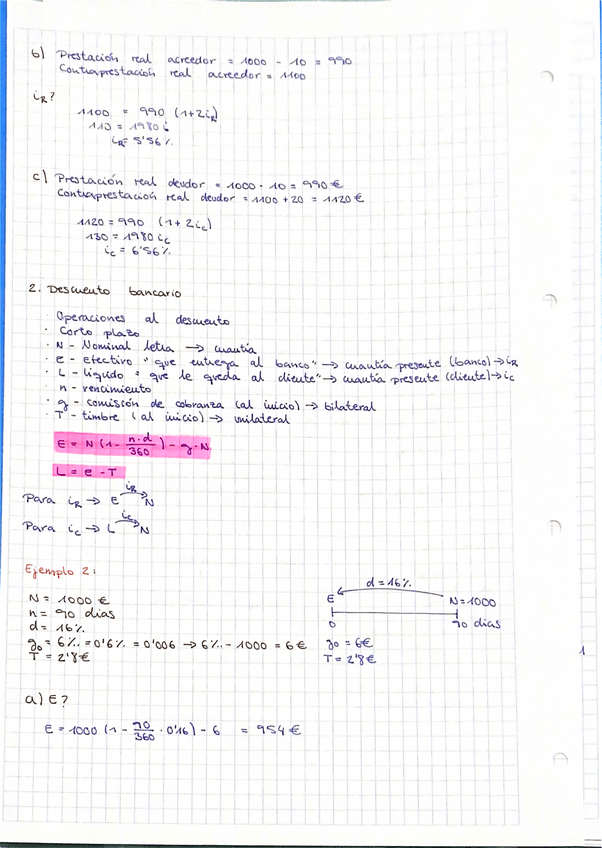 b) Prestación real acreedor = 1000 - 10 = 990
Contraprestación real acreedor = 1100
iR?
1100 = 990 (1+2iR)
110 = 1980 i
iR = 5'56%
c) Prestación real deudor = 1000 - 10 = 990 €
Contraprestación real deudor = 1100 + 20 = 1120 €
1120 = 990 (1+2ic)
130 = 1980 ic
ic = 6'56%
2. Descuento bancario
Operaciones al descuento
· Corto plazo
· N - Nominal letra → cuantía
· e - efectivo "que entrega al banco" → cuantía presente (banco) → iR
· L - líquido "que le queda al cliente" → cuantía presente (cliente) → ic
n - vencimiento
· g - comisión de cobranza (al inicio) → bilateral
· T - timbre (al inicio) → unilateral
E = N (1 - n·d/360) - g·N
L = e - T
Para iR → E iR N
Para ic → L ic N
Ejemplo 2:
N = 1000 €
n = 90 días
d = 16%
g0 = 6‰ = 0'6% = 0'006 → 6‰ - 1000 = 6 €
T = 2'8 €
d = 16%
E N = 1000
0 90 días
g0 = 6€
T = 2'8€
a) E?
E = 1000 (1 - 90/360 · 0'16) - 6 = 954 €
1